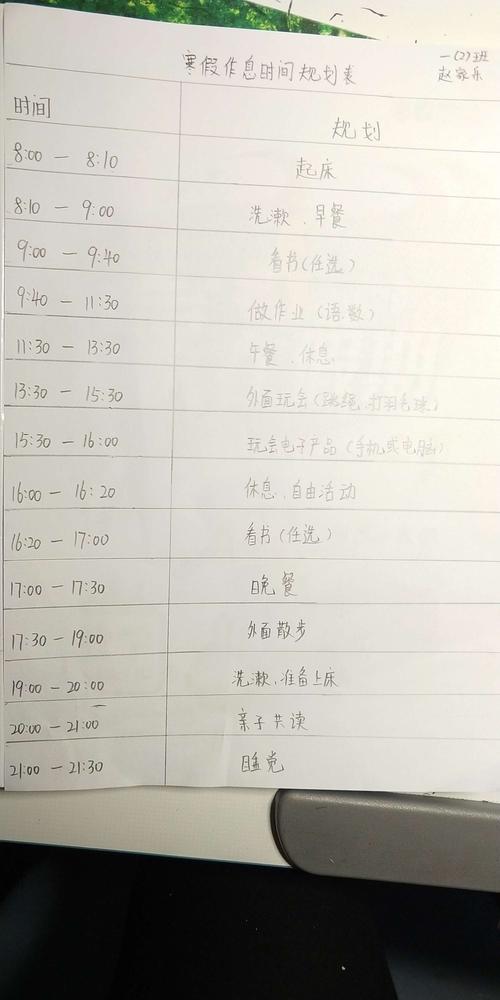 寒假作息时间规划表
一(2)班
赵家乐
时间 规划
8:00 — 8:10 起床
8:10 — 9:00 洗漱、早餐
9:00 — 9:40 看书(任选)
9:40 — 11:30 做作业(语.数)
11:30 — 13:30 午餐、休息
13:30 — 15:30 外面玩会(跳绳.打羽毛球)
15:30 — 16:00 玩会电子产品(手机或电脑)
16:00 — 16:20 休息、自由活动
16:20 — 17:00 看书(任选)
17:00 — 17:30 晚餐
17:30 — 19:00 外面散步
19:00 — 20:00 洗漱、准备上床
20:00 — 21:00 亲子共读
21:00 — 21:30 睡觉